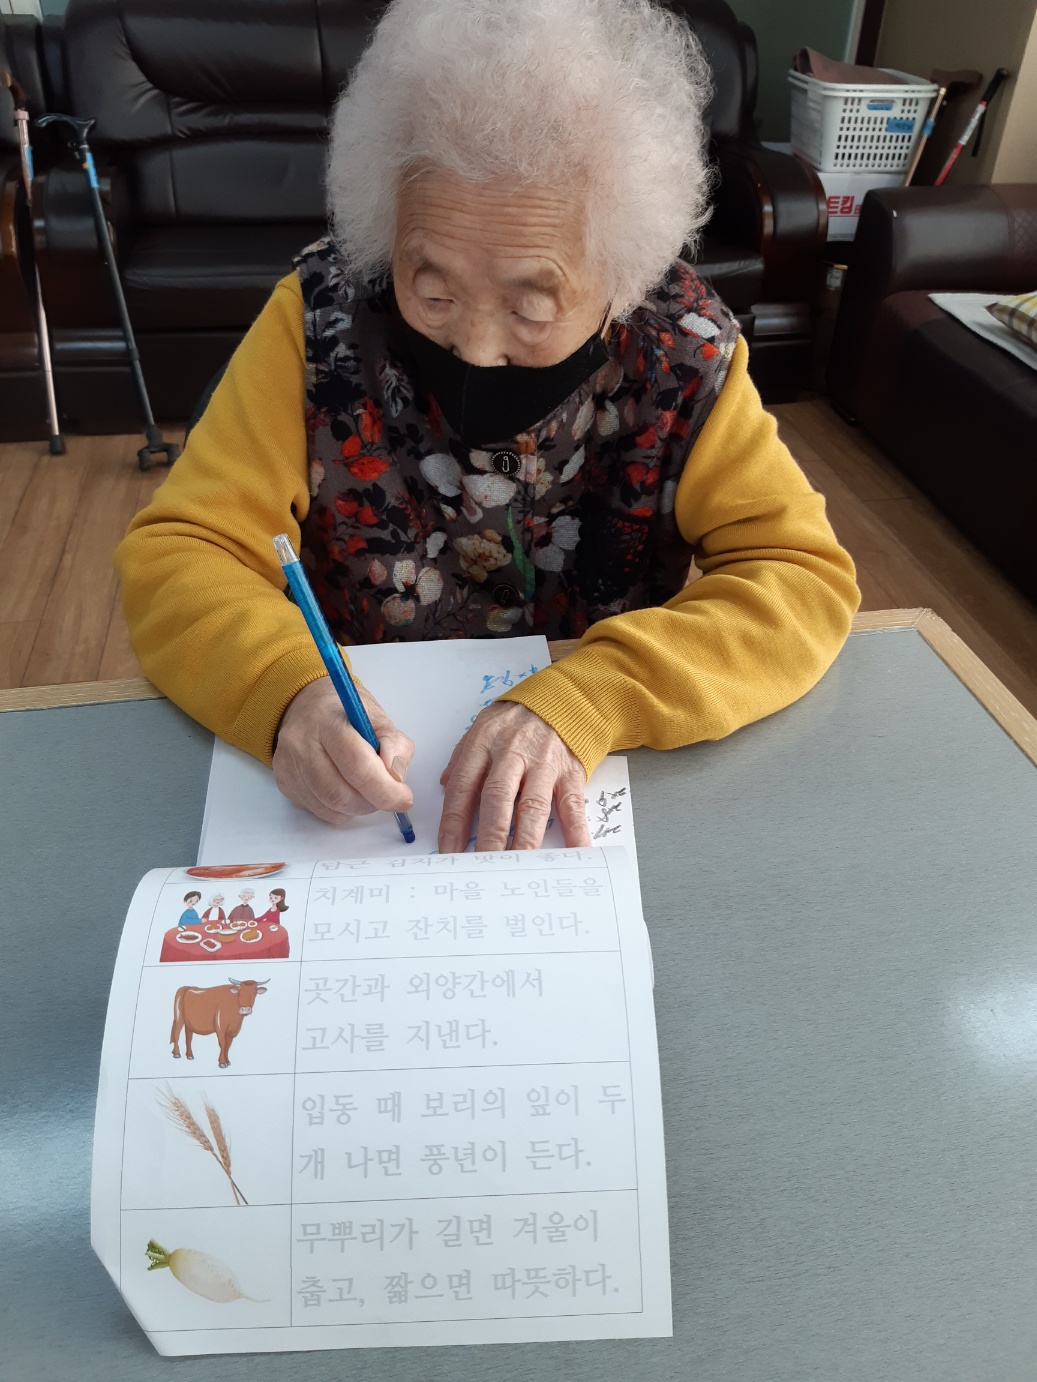 트킹
담근 김치가 맛이 좋다.
치계미 : 마을 노인들을
모시고 잔치를 벌인다.
곳간과 외양간에서
고사를 지낸다.
입동 때 보리의 잎이 두
개 나면 풍년이 든다.
무뿌리가 길면 겨울이
춥고, 짧으면 따뜻하다.